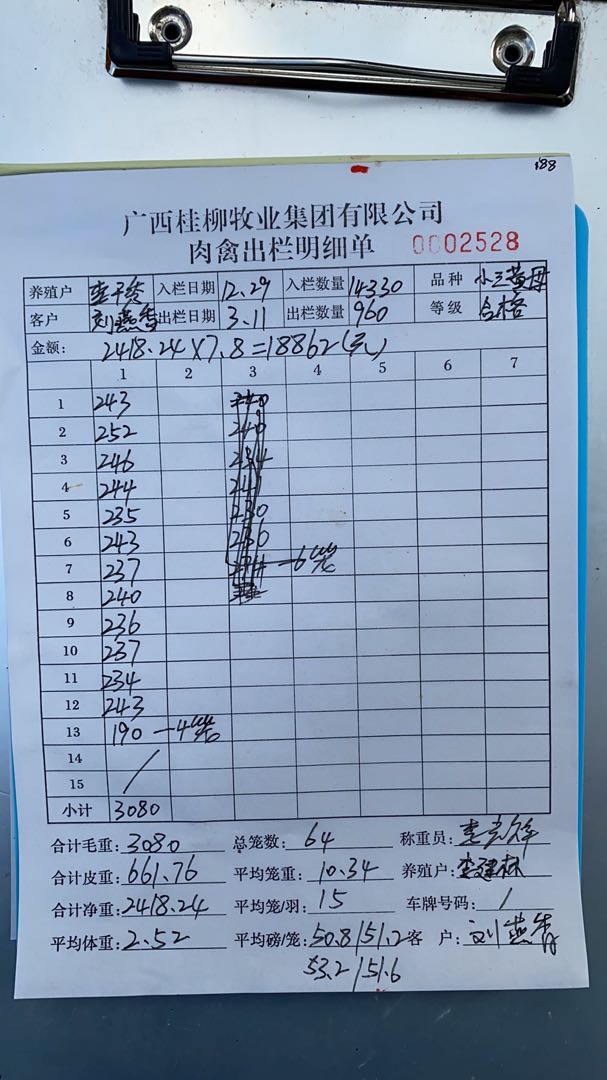 188
广西桂柳牧业集团有限公司
肉禽出栏明细单 0002528
养殖户 入栏日期 12.29 入栏数量 14330 品种
客户 刘燕香 出栏日期 3.11 出栏数量 960 等级 合格
金额: 2418.24×7.8=18862(元)
1 2 3 4 5 6 7
1 243 240
2 252 240
3 246 234
4 244 241
5 235 230
6 243 236
7 237 —6笼
8 240
9 236
10 237
11 234
12 243
13 190 —4笼
14 /
15
小计 3080
合计毛重: 3080 总笼数: 64 称重员:
合计皮重: 661.76 平均笼重: 10.34 养殖户: 李建林
合计净重: 2418.24 平均笼/羽: 15 车牌号码: /
平均体重: 2.52 平均磅/笼: 50.8/51.2 客 户: 刘燕香
53.2/51.6